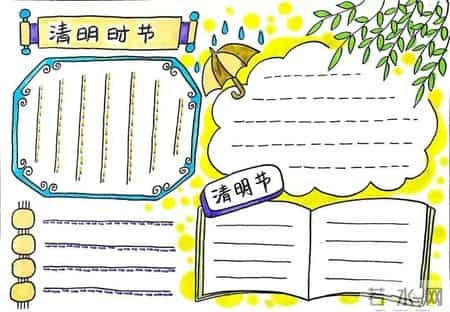 清明时节
清明节
若水网